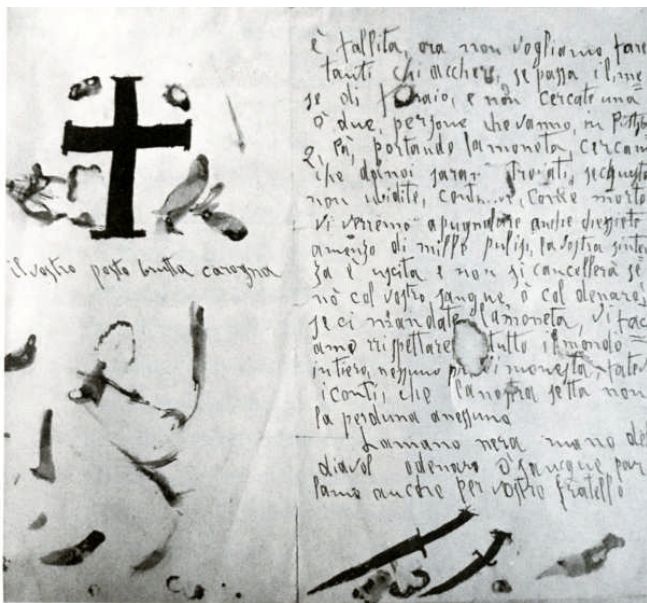 il vostro posto brutta carogna
è fallita, ora non vogliamo fare
tanti chiacchere, se passa il me
se di e non cercate una
ò due, persone che vanno, in
portando lamoneta, cercam
che danoi saran trovati, se questo
non come morto
vi verremo apugnalare anche
amenzo di mille pulis, la vostra sinten
za è uscita e non si cancellera se
nò col vostro, sangue, ò col denaro,
se ci mandate lamoneta, vi fac
amo rrispettare tutto il mondo =
intiero, nessuno vi monesta, fatevi
i conti, che lanostra setta non
la perduna anessuno
Lamano nera mano del
diavol odenaro ò sancque par
lamo ancore per vostro fratello